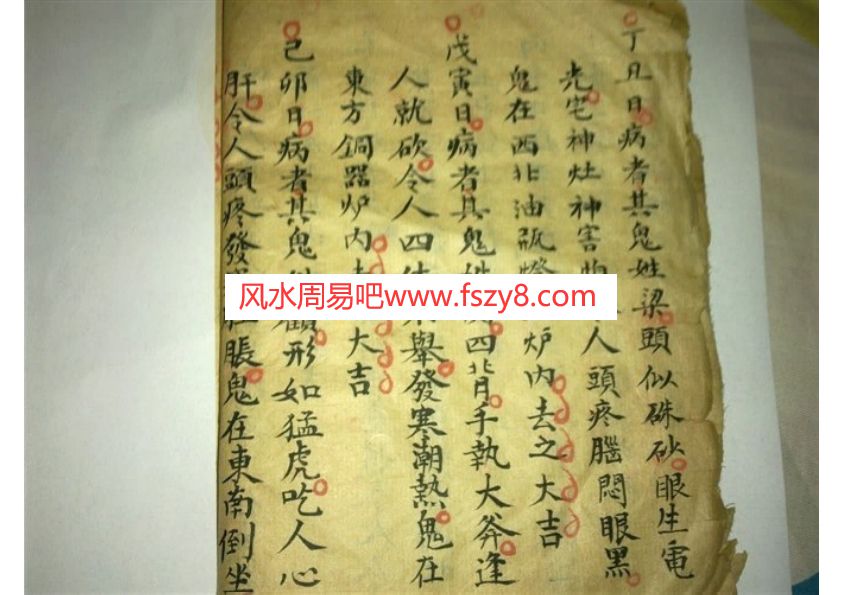 丁丑日病者其鬼姓梁頭似硃砂眼生電
光宅神灶神害人頭疼腦悶眼黑
鬼在西北油瓶炉内去之大吉
戊寅日病者其鬼四背手執大斧逢
人就砍令人四舉發寒潮熱鬼在
東方銅器炉内大吉
己卯日病者其鬼形如猛虎吃人心
肝令人頭疼發脹鬼在東南倒坐
风水周易吧www.fszy8.com